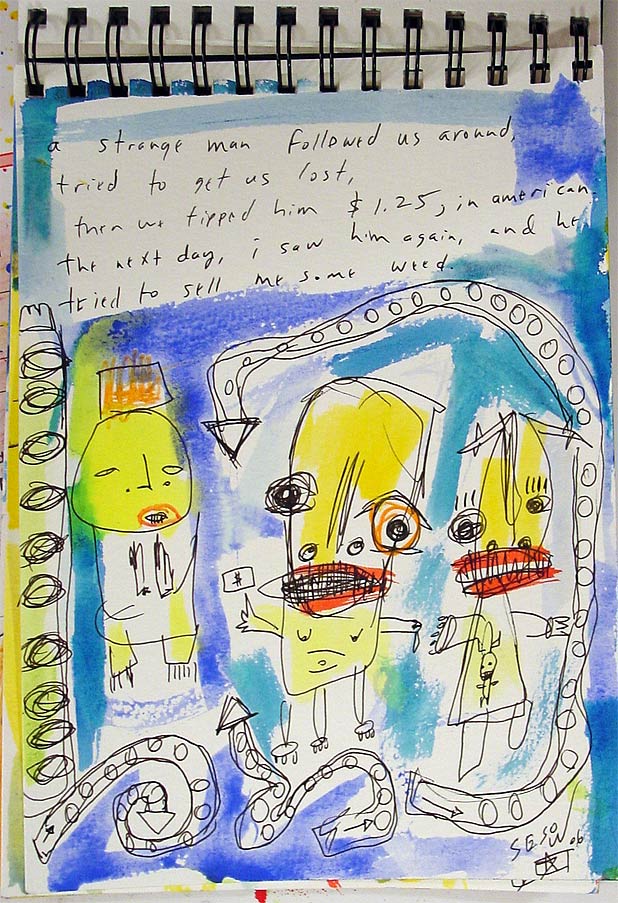 a strange man followed us around,
tried to get us lost,
then we tipped him $1.25, in american.
the next day, i saw him again, and he
tried to sell me some weed.
$
SESOW 06